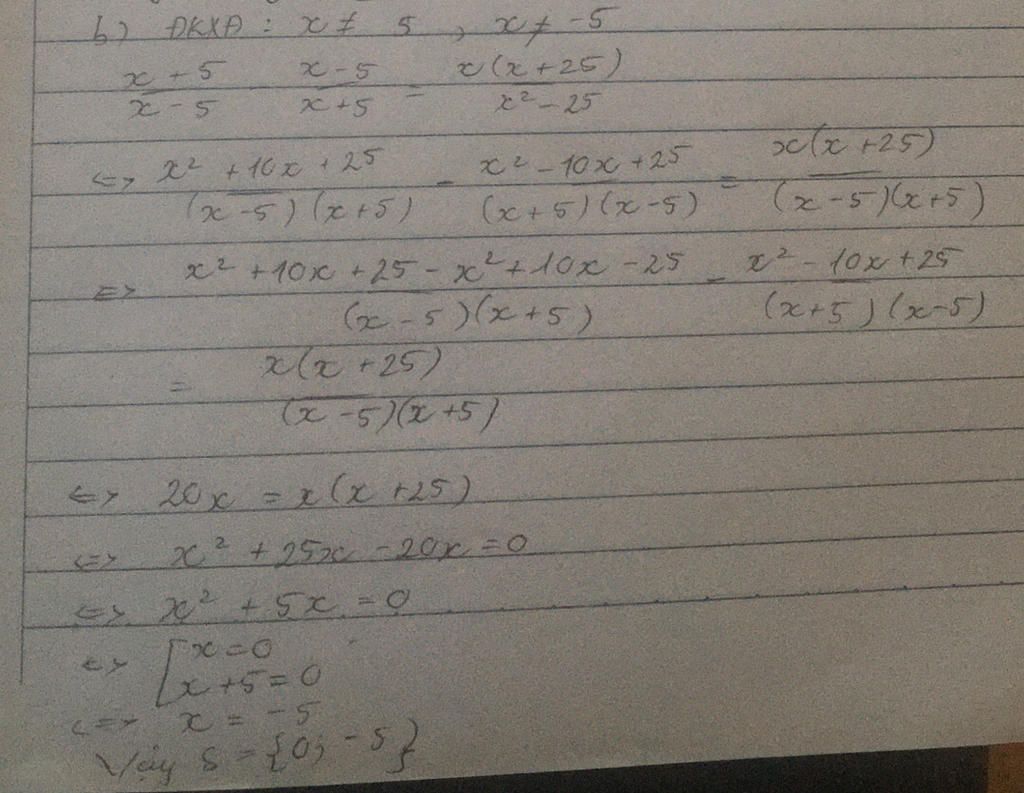 b) ĐKXĐ : x ≠ 5 , x ≠ -5
(x + 5)/(x - 5) (x - 5)/(x + 5) = x(x + 25)/(x² - 25)
<=> (x² + 10x + 25)/((x - 5)(x + 5)) - (x² - 10x + 25)/((x + 5)(x - 5)) = x(x + 25)/((x - 5)(x + 5))
<=> (x² + 10x + 25 - x² + 10x - 25)/((x - 5)(x + 5)) - (x² - 10x + 25)/((x + 5)(x - 5))
= x(x + 25)/((x - 5)(x + 5))
<=> 20x = x(x + 25)
<=> x² + 25x - 20x = 0
<=> x² + 5x = 0
<=> [ x = 0
x + 5 = 0
<=> x = -5
Vậy S = {0; -5}